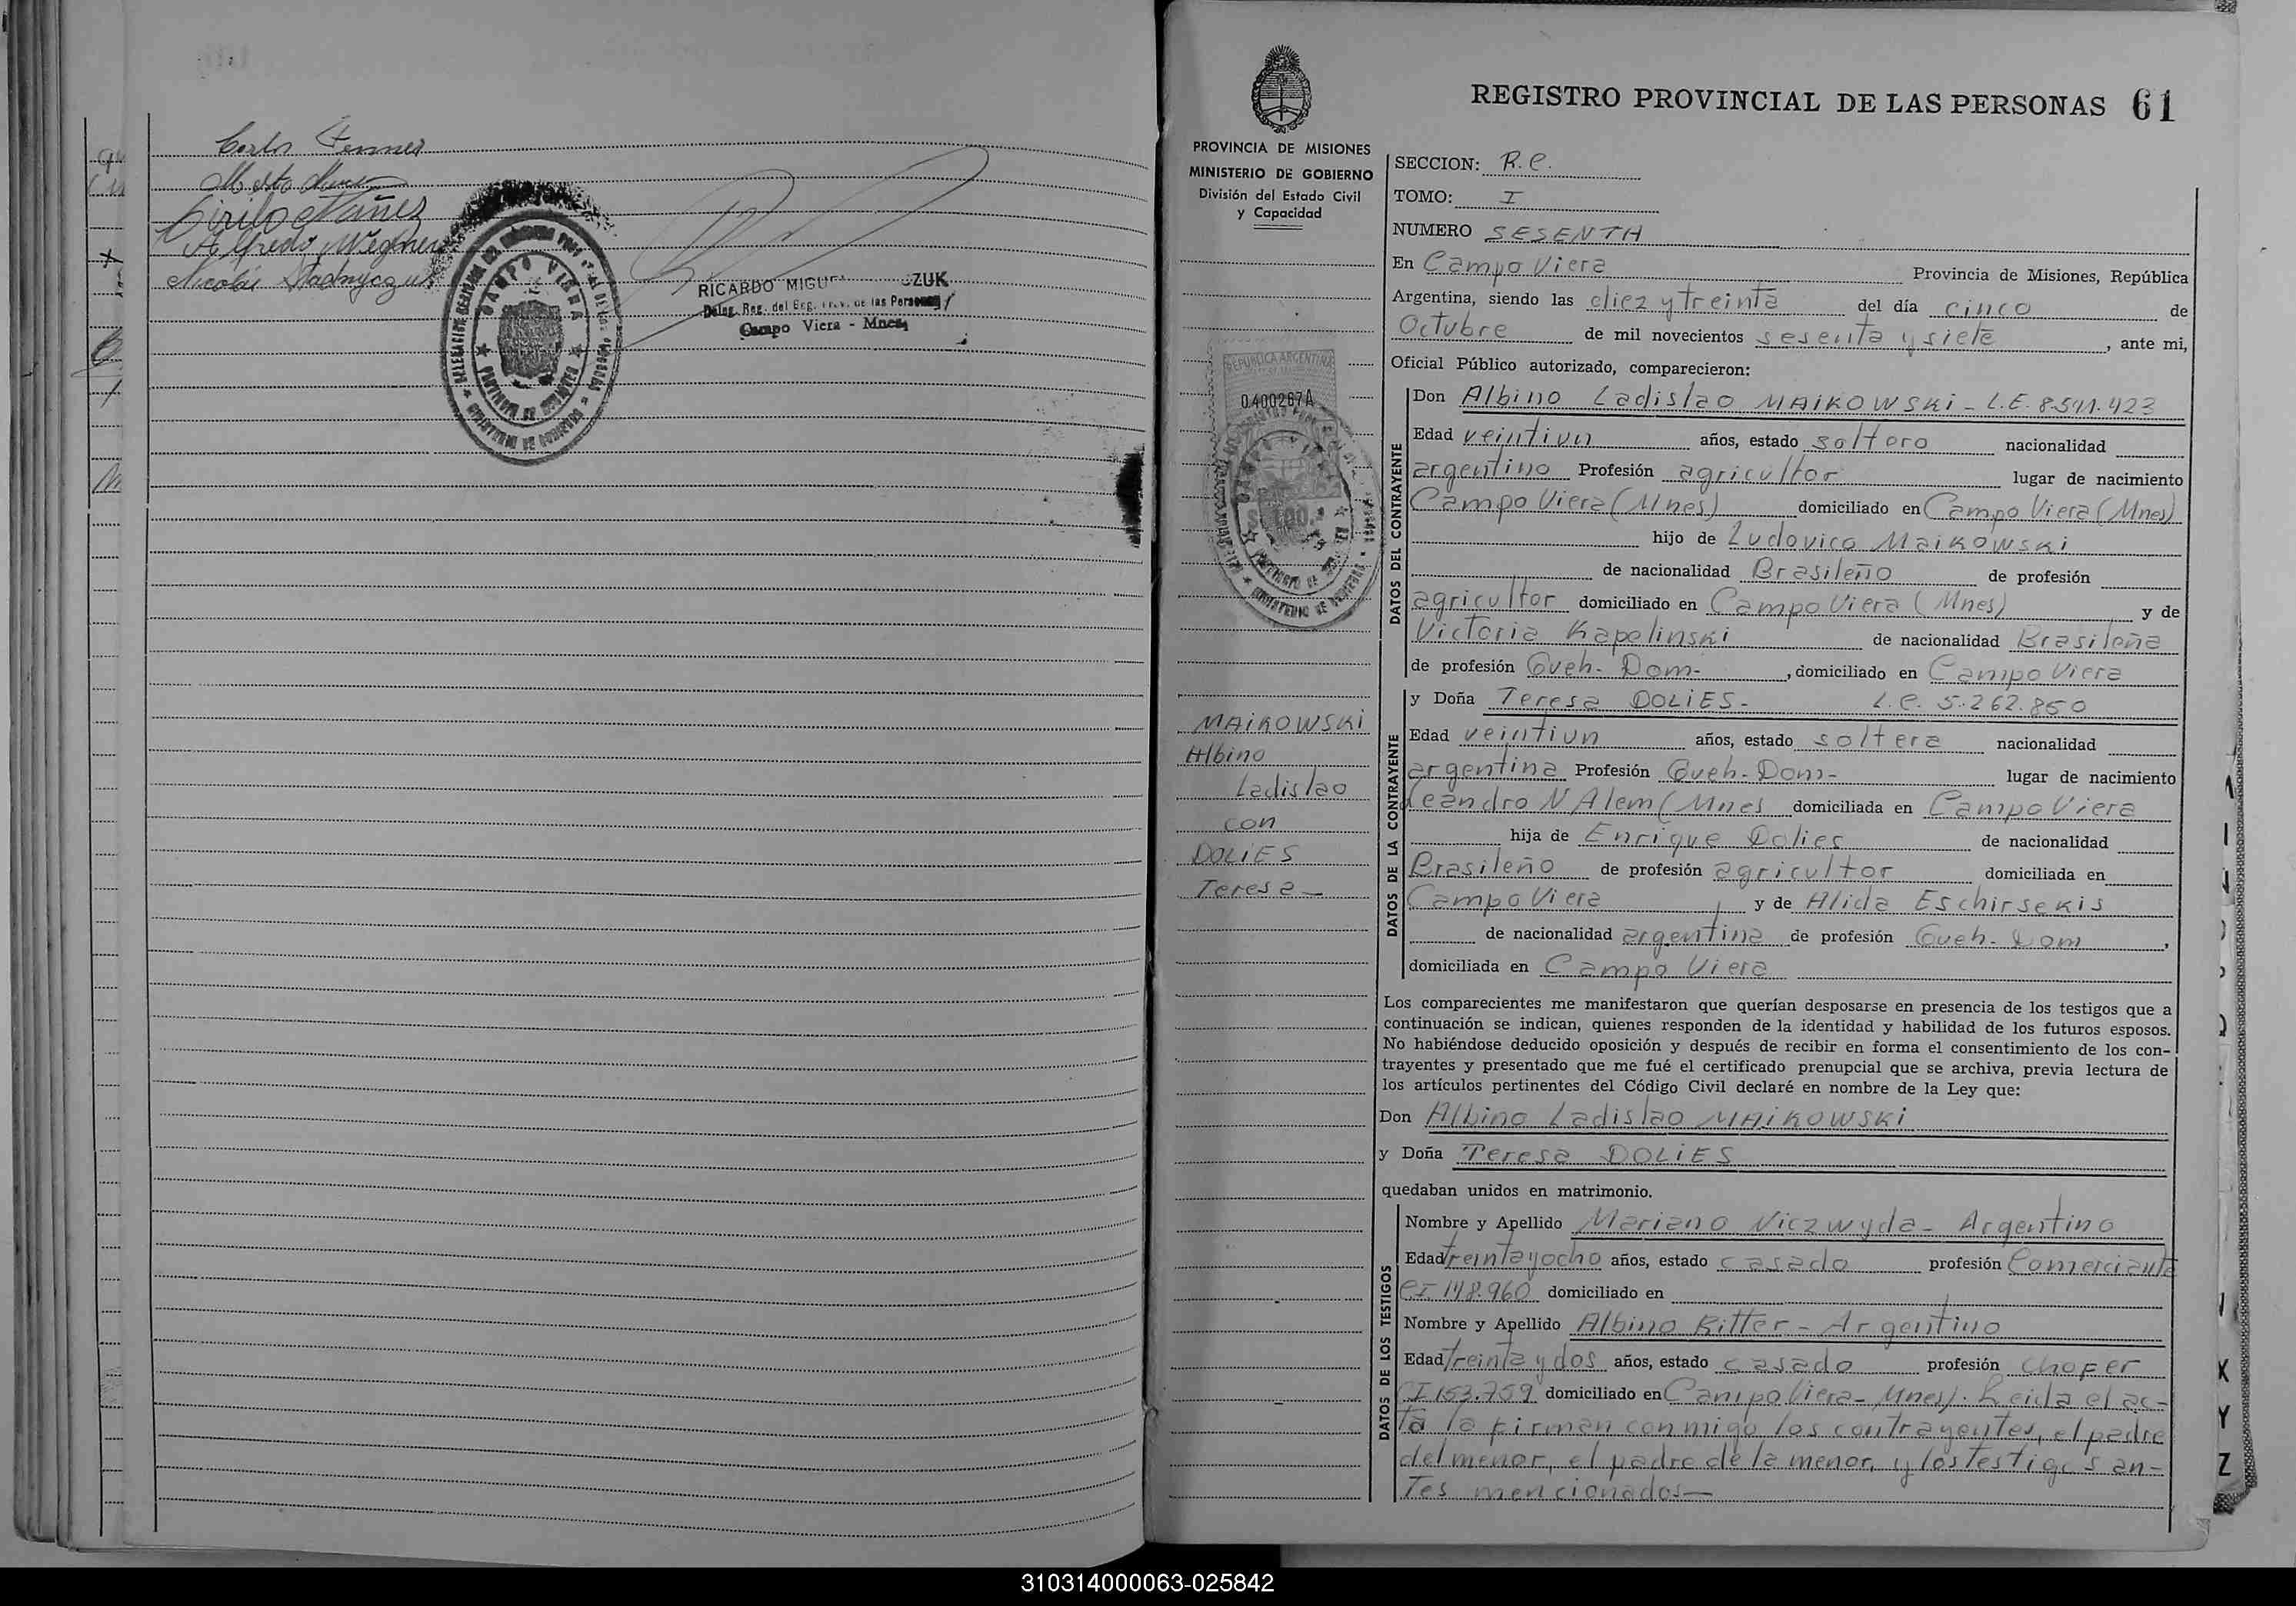 Carlos
Cirilo Núñez
Alfredo Wegner
Nicolás
CAMPO VIERA
RICARDO MIGU ZUK
Campo Viera - Mnes
REGISTRO PROVINCIAL DE LAS PERSONAS 61
PROVINCIA DE MISIONES
MINISTERIO DE GOBIERNO
División del Estado Civil
y Capacidad
REPUBLICA ARGENTINA
0400267A
MAIKOWSKI
Albino
Ladislao
con
DOLIES
Teresa
SECCION: R.C.
TOMO: I
NUMERO SESENTA
En Campo Viera Provincia de Misiones, República
Argentina, siendo las diez y treinta del día cinco de
Octubre de mil novecientos sesenta y siete, ante mi,
Oficial Público autorizado, comparecieron:
DATOS DEL CONTRAYENTE
Don Albino Ladislao MAIKOWSKI - L.E. 8.541.423
Edad veintiun años, estado soltero nacionalidad
argentino Profesión agricultor lugar de nacimiento
Campo Viera (Mnes) domiciliado en Campo Viera (Mnes)
hijo de Ludovico Maikowski
de nacionalidad Brasileño de profesión
agricultor domiciliado en Campo Viera (Mnes) y de
Victoria Kapelinski de nacionalidad Brasileña
de profesión Queh. Dom-, domiciliado en Campo Viera
DATOS DE LA CONTRAYENTE
y Doña Teresa DOLIES - L.C. 5.262.860
Edad veintiun años, estado soltera nacionalidad
argentina Profesión Queh- Dom- lugar de nacimiento
Leandro N Alem (Mnes domiciliada en Campo Viera
hija de Enrique Dolies de nacionalidad
Brasileño de profesión agricultor domiciliada en
Campo Viera y de Alida Eschirsekis
de nacionalidad argentina de profesión Queh- Dom,
domiciliada en Campo Viera
Los comparecientes me manifestaron que querían desposarse en presencia de los testigos que a
continuación se indican, quienes responden de la identidad y habilidad de los futuros esposos.
No habiéndose deducido oposición y después de recibir en forma el consentimiento de los con-
trayentes y presentado que me fué el certificado prenupcial que se archiva, previa lectura de
los artículos pertinentes del Código Civil declaré en nombre de la Ley que:
Don Albino Ladislao MAIKOWSKI
y Doña Teresa DOLIES
quedaban unidos en matrimonio.
DATOS DE LOS TESTIGOS
Nombre y Apellido Mariano Niczwyda - Argentino
Edad treinta y ocho años, estado casado profesión Comerciante
CI 148.960 domiciliado en
Nombre y Apellido Albino Ritter - Argentino
Edad treinta y dos años, estado casado profesión chofer
CI 153.759 domiciliado en Campo Viera- Mnes). Leida el ac-
ta la firman conmigo los contrayentes, el padre
del menor, el padre de la menor, y los testigos an-
tes mencionados—
X
Y
Z
310314000063-025842